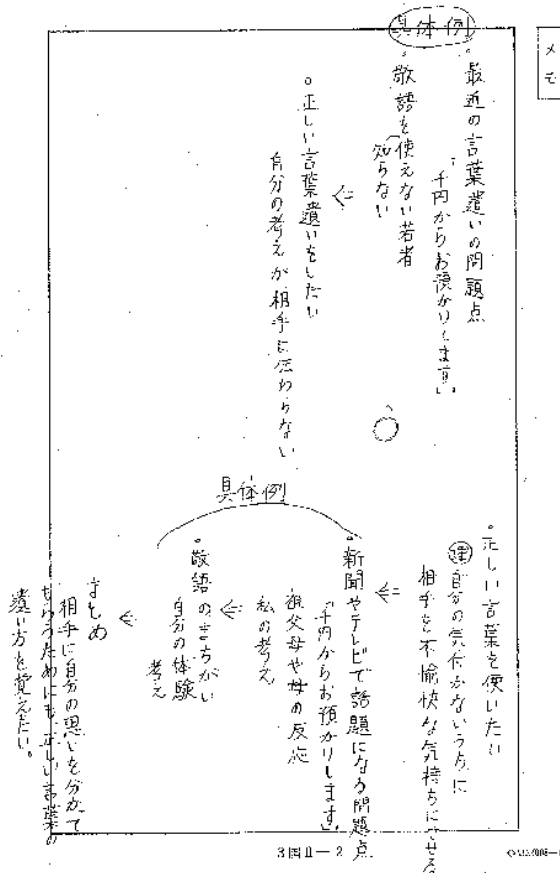 メモ
具体例
。最近の言葉遣いの問題点
「千円からお預かりします」。
。敬語を使えない若者
知らない
⇐
。正しい言葉遣いをしたい
自分の考えが相手に伝わらない
。正しい言葉を使いたい
理 自分の気付かないうちに
相手を不愉快な気持ちにさせる
⇐
具体例
。新聞やテレビで話題になる問題点
「千円からお預かりします」。
祖父母や母の反応
私の考え
⇐
。敬語のまちがい
自分の体験
考え
⇐
まとめ
相手に自分の思いを分かて
もらうためにも正しい言葉の
遣い方を覚えたい。
3国Ⅱ−2